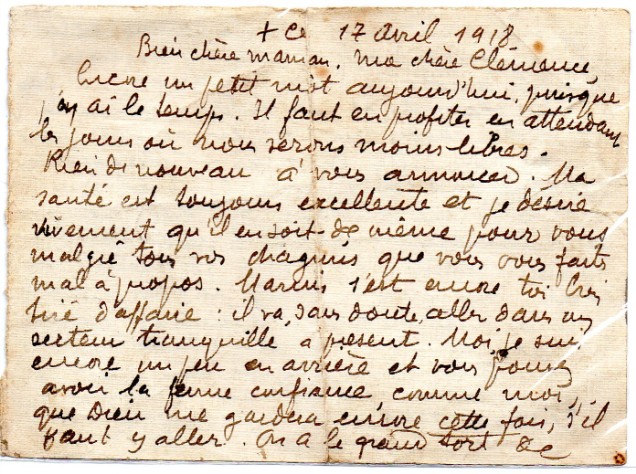 + Ce 17 avril 1918
Bien chère maman, ma chère Clémence,
Encore un petit mot aujourd'hui, puisque
j'en ai le temps. Il faut en profiter en attendant
les jours où nous serons moins libres.
Rien de nouveau à vous annoncer. Ma
santé est toujours excellente et je désire
vivement qu'il en soit de même pour vous
malgré tous vos chagrins que vous vous faits
mal à propos. Marius s'est encore
tiré d'affaire : il va, sans doute, aller dans un
secteur tranquille à présent. Moi, je suis
encore un peu en arrière et vous pouvez
avoir la ferme confiance, comme moi,
que Dieu me gardera encore cette fois, s'il
faut y aller. On a le grand tort de